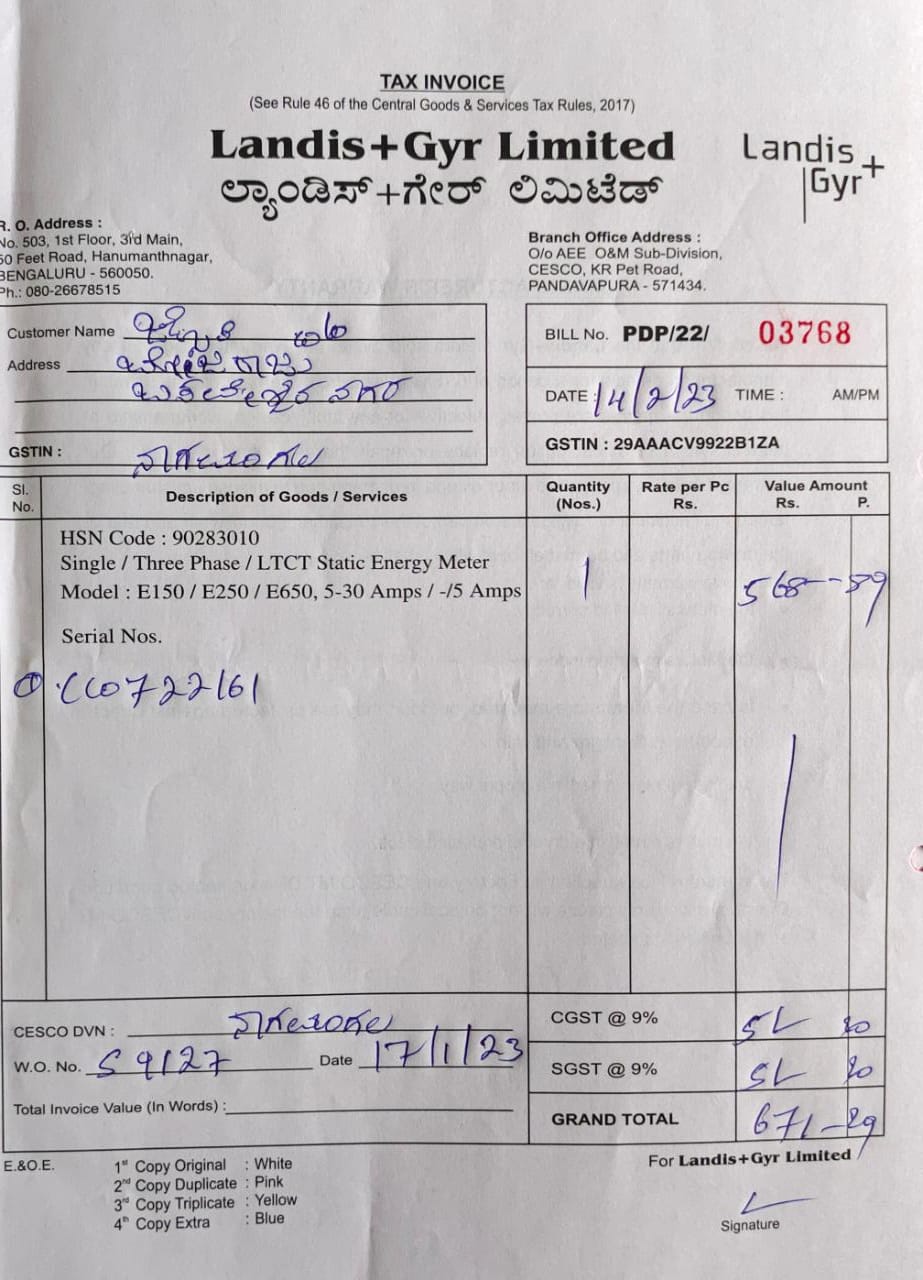 TAX INVOICE
(See Rule 46 of the Central Goods & Services Tax Rules, 2017)
Landis+Gyr Limited
ಲ್ಯಾಂಡಿಸ್+ಗೇರ್ ಲಿಮಿಟೆಡ್
Landis
Gyr+
R. O. Address :
No. 503, 1st Floor, 3rd Main,
50 Feet Road, Hanumanthnagar,
BENGALURU - 560050.
Ph.: 080-26678515
Branch Office Address :
O/o AEE O&M Sub-Division,
CESCO, KR Pet Road,
PANDAVAPURA - 571434.
Customer Name
Address
GSTIN :
BILL No. PDP/22/ 03768
DATE : 14/2/23 TIME : AM/PM
GSTIN : 29AAACV9922B1ZA
Sl. No. Description of Goods / Services Quantity (Nos.) Rate per Pc Rs. Value Amount Rs. P.
HSN Code : 90283010
Single / Three Phase / LTCT Static Energy Meter
Model : E150 / E250 / E650, 5-30 Amps / -/5 Amps 1 568-89
Serial Nos.
CESCO DVN :
W.O. No. S 9127 Date 17/1/23
Total Invoice Value (In Words) :
CGST @ 9%
SGST @ 9%
GRAND TOTAL 671-29
E.&O.E.
1st Copy Original : White
2nd Copy Duplicate : Pink
3rd Copy Triplicate : Yellow
4th Copy Extra : Blue
For Landis+Gyr Limited
Signature